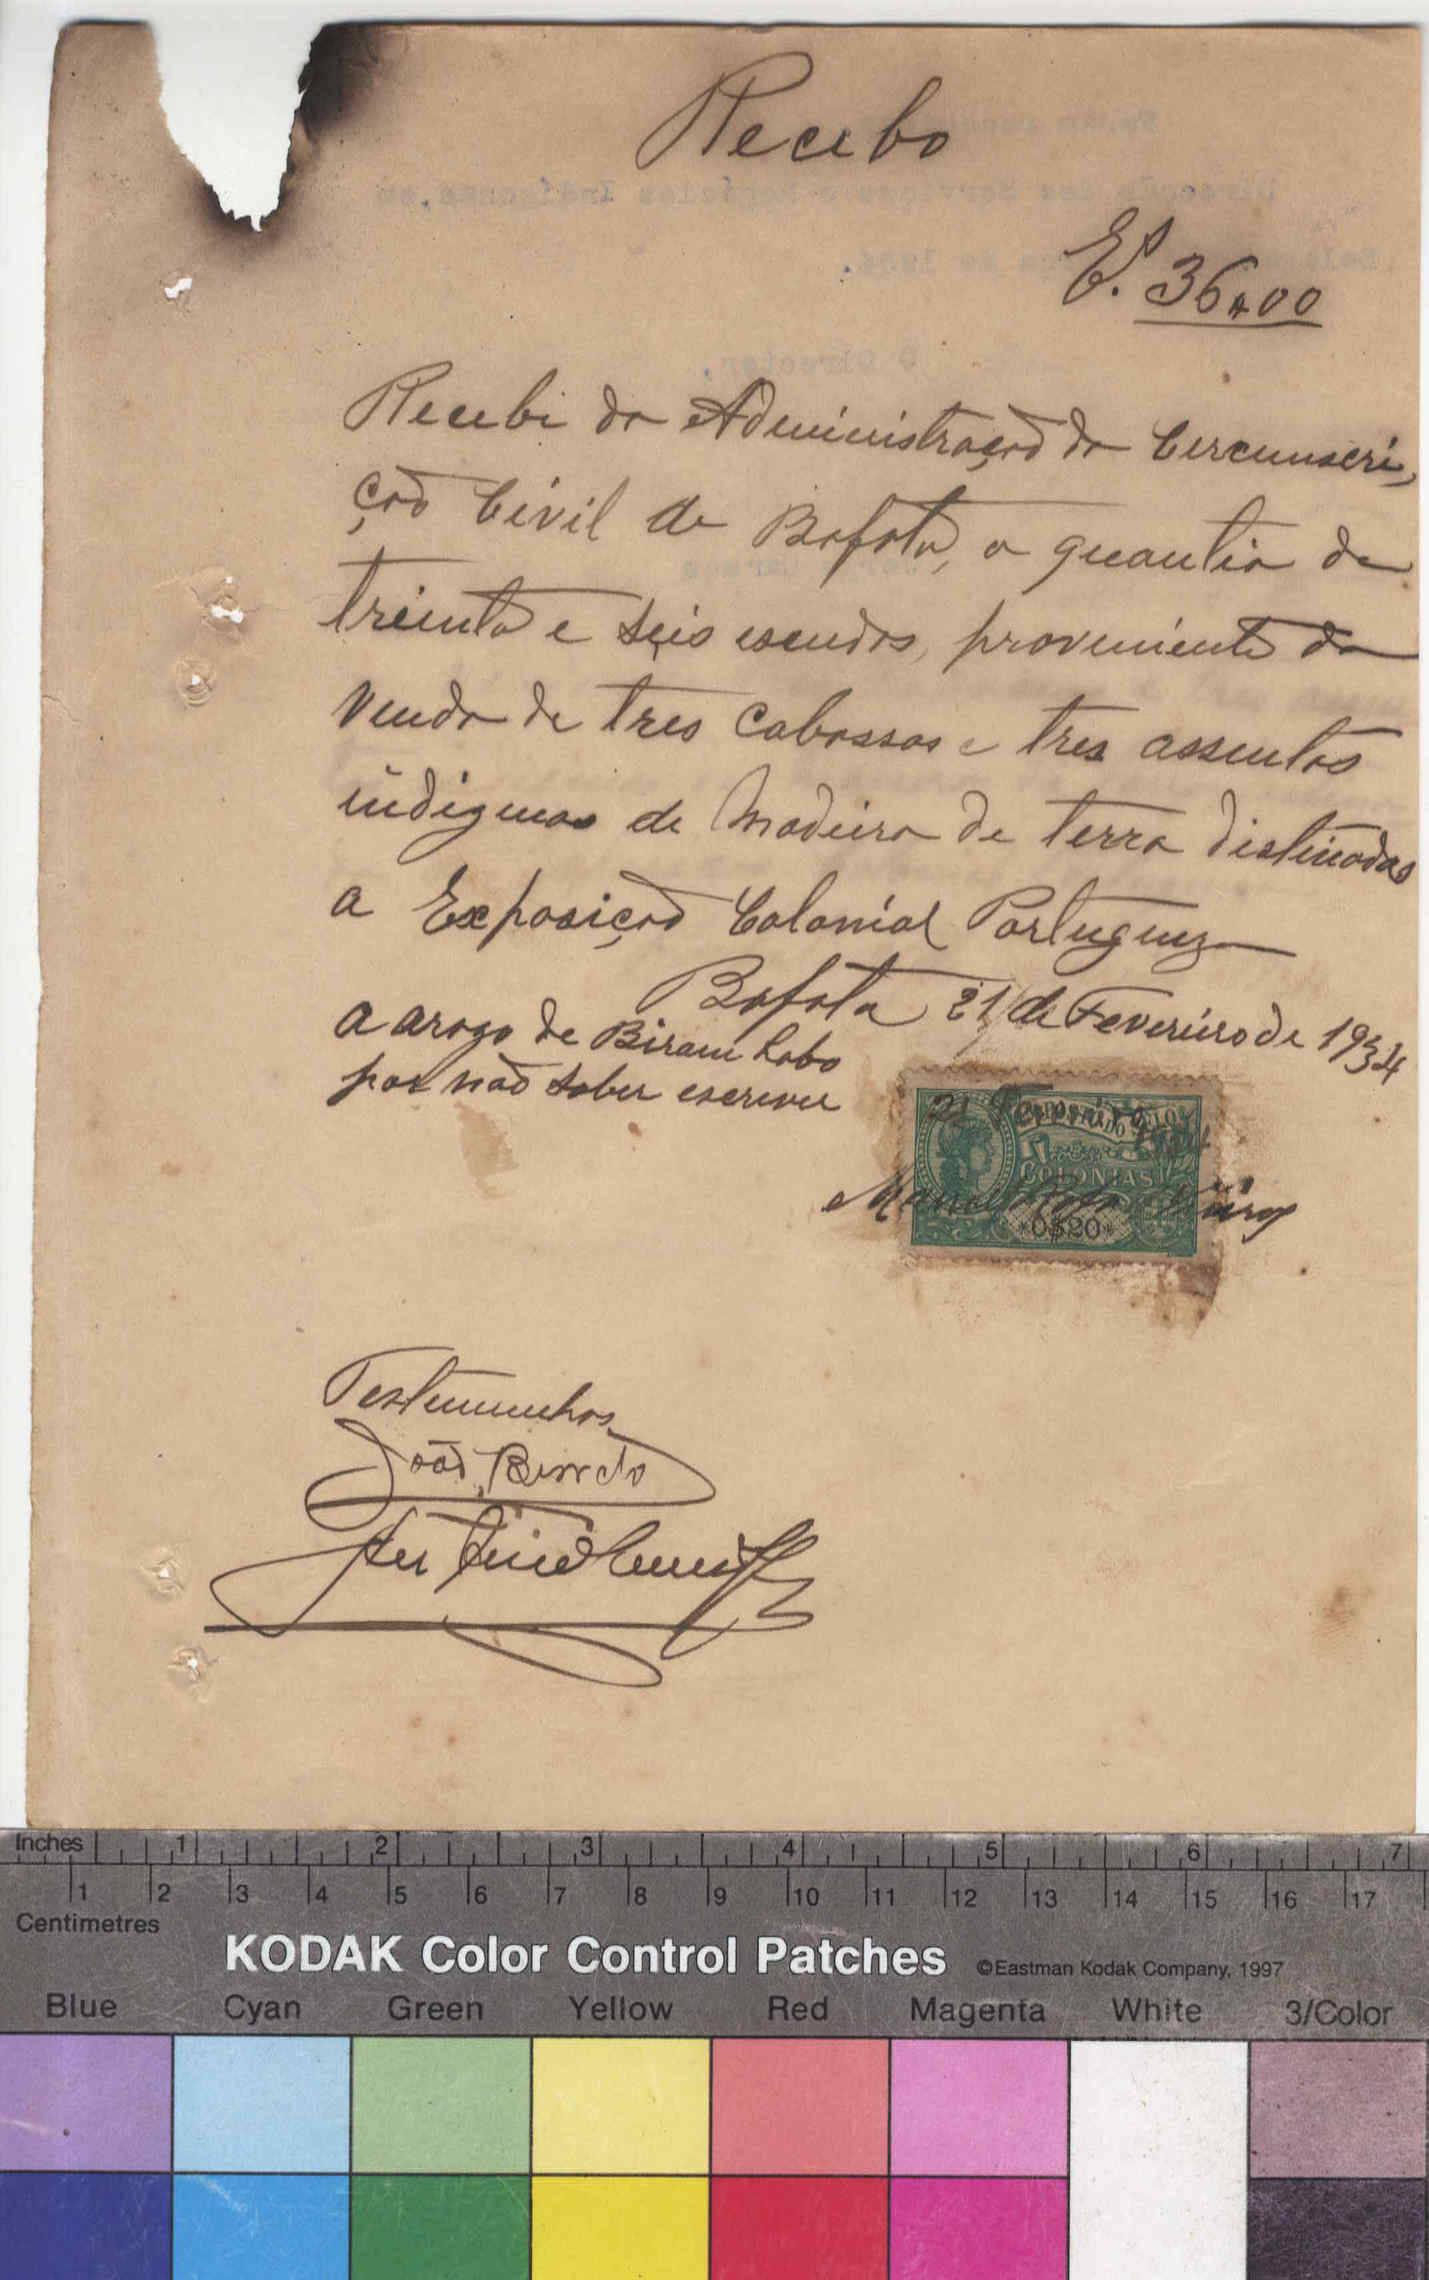 Recibo
E.º 36$00
Recebi da Administração da Circunscri,
ção Civil de Bafata, a quantia de
trinta e seis escudos, proveniente da
venda de tres cabassas e tres assentos
indigenas de madeira de terra distinadas
a Exposição Colonial Portugueza
Bafata 21 de Fevereiro de 1934
a arogo de Biram
por não saber escrever
21
COLONIAS
*0$20*
Testemunhas
João
Inches 1 2 3 4 5 6 7
1 2 3 4 5 6 7 8 9 10 11 12 13 14 15 16 17
Centimetres
KODAK Color Control Patches ©Eastman Kodak Company, 1997
Blue Cyan Green Yellow Red Magenta White 3/Color